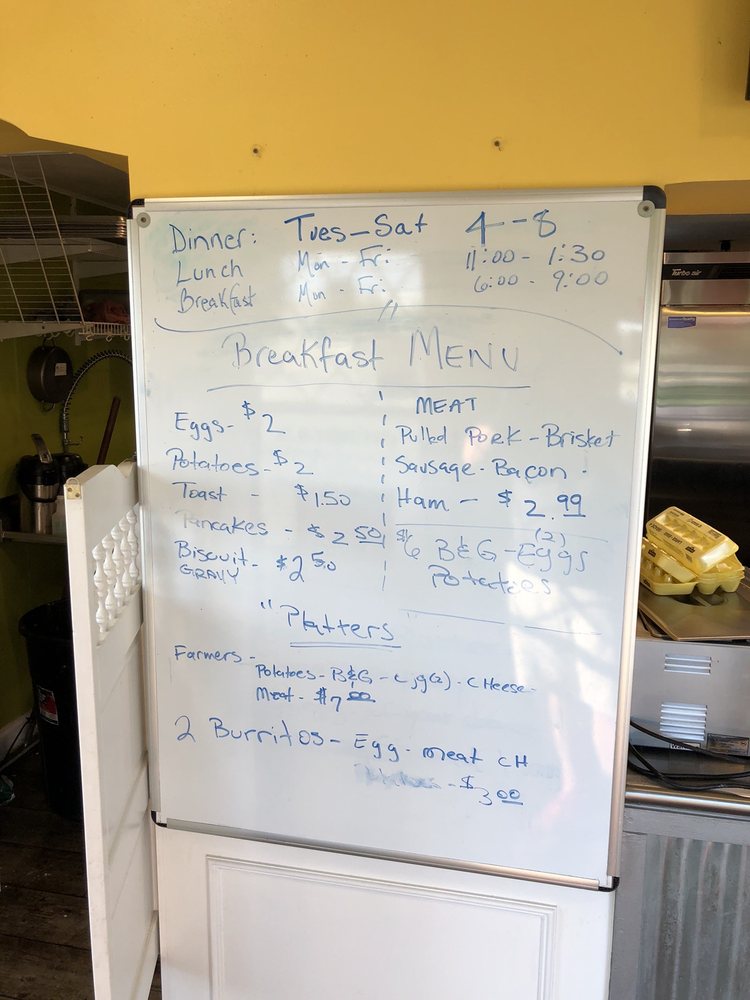 Dinner: Tues-Sat 4-8
Lunch Mon - Fri 11:00 - 1:30
Breakfast Mon - Fri 6:00 - 9:00
Breakfast MENU
Eggs- $2
Potatoes- $2
Toast - $1.50
Pancakes - $2 50
Biscuit- $2 50
GRAVY
MEAT
Pulled Pork - Brisket
Sausage - Bacon
Ham - $2.99
$6 B&G - Eggs (2)
Potatoes
"Platters"
Farmers -
Potatoes - B&G - (2) - CHeese -
Meat - $7 00
2 Burritos - Egg - meat CH
- $3 00
Turbo air